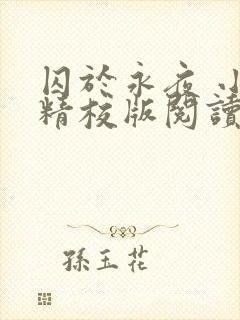 囚於永夜 小
精校版閱讀
孫玉花